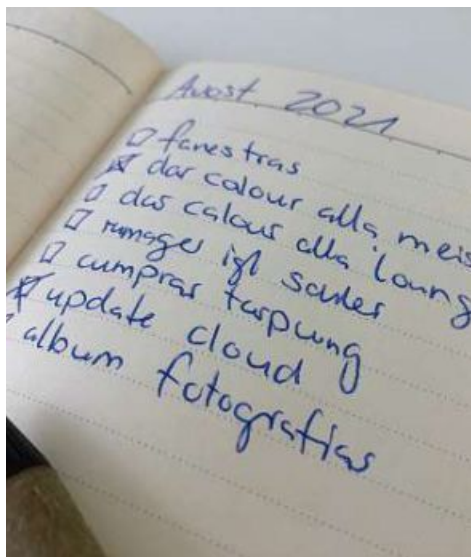 Avost 2021
fanestras
dar calour alla meis
dar calour alla loung
rumager igl schler
cumprar tarpung
update cloud
album fotografias